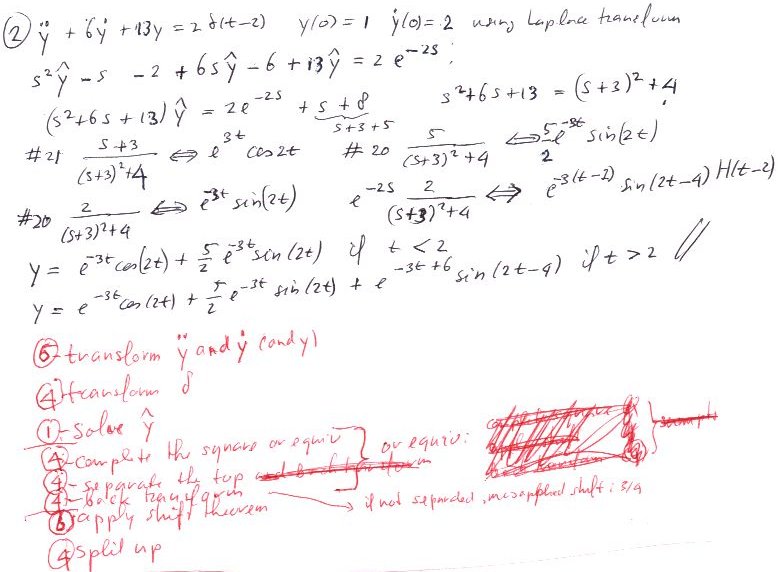 ② ÿ + 6ẏ + 13y = 2 δ(t-2) y(0) = 1 ẏ(0) = 2 using Laplace transform
s²ŷ - s - 2 + 6sŷ - 6 + 13ŷ = 2 e^{-2s} ;
(s²+6s+13) ŷ = 2e^{-2s} + s + 8 s²+6s+13 = (s+3)²+4
s+3+5
#21 (s+3)/((s+3)²+4) ⇔ e^{3t} cos2t #20 5/((s+3)²+4) ⇔ 5/2 e^{-3t} sin(2t)
#20 2/((s+3)²+4) ⇔ e^{-3t} sin(2t) e^{-2s} 2/((s+3)²+4) ⇔ e^{-3(t-2)} sin(2t-4) H(t-2)
y = e^{-3t} cos(2t) + 5/2 e^{-3t} sin(2t) if t < 2
y = e^{-3t} cos(2t) + 5/2 e^{-3t} sin(2t) + e^{-3t+6} sin(2t-4) if t > 2 //
⑥ - transform ÿ and ẏ (and y)
④ - transform δ
① - Solve ŷ
④ - complete the square or equiv
or equiv:
④ - separate the top
④ - back transform
→ if not separated, misapplied shift: 3/4
⑥ apply shift theorem
④ split up